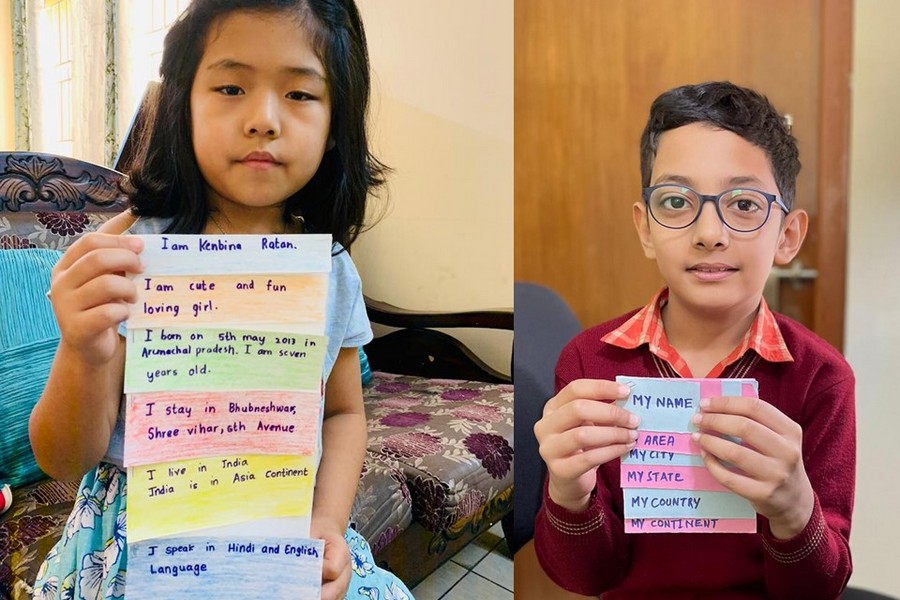 I am Kenbina Ratan.
I am cute and fun
loving girl.
I born on 5th may 2013 in
Arunachal pradesh. I am seven
years old.
I stay in Bhubneshwar,
Shree vihar, 6th Avenue
I live in India
India is in Asia continent
I speak in Hindi and English
Language
MY NAME
AREA
MY CITY
MY STATE
MY COUNTRY
MY CONTINENT